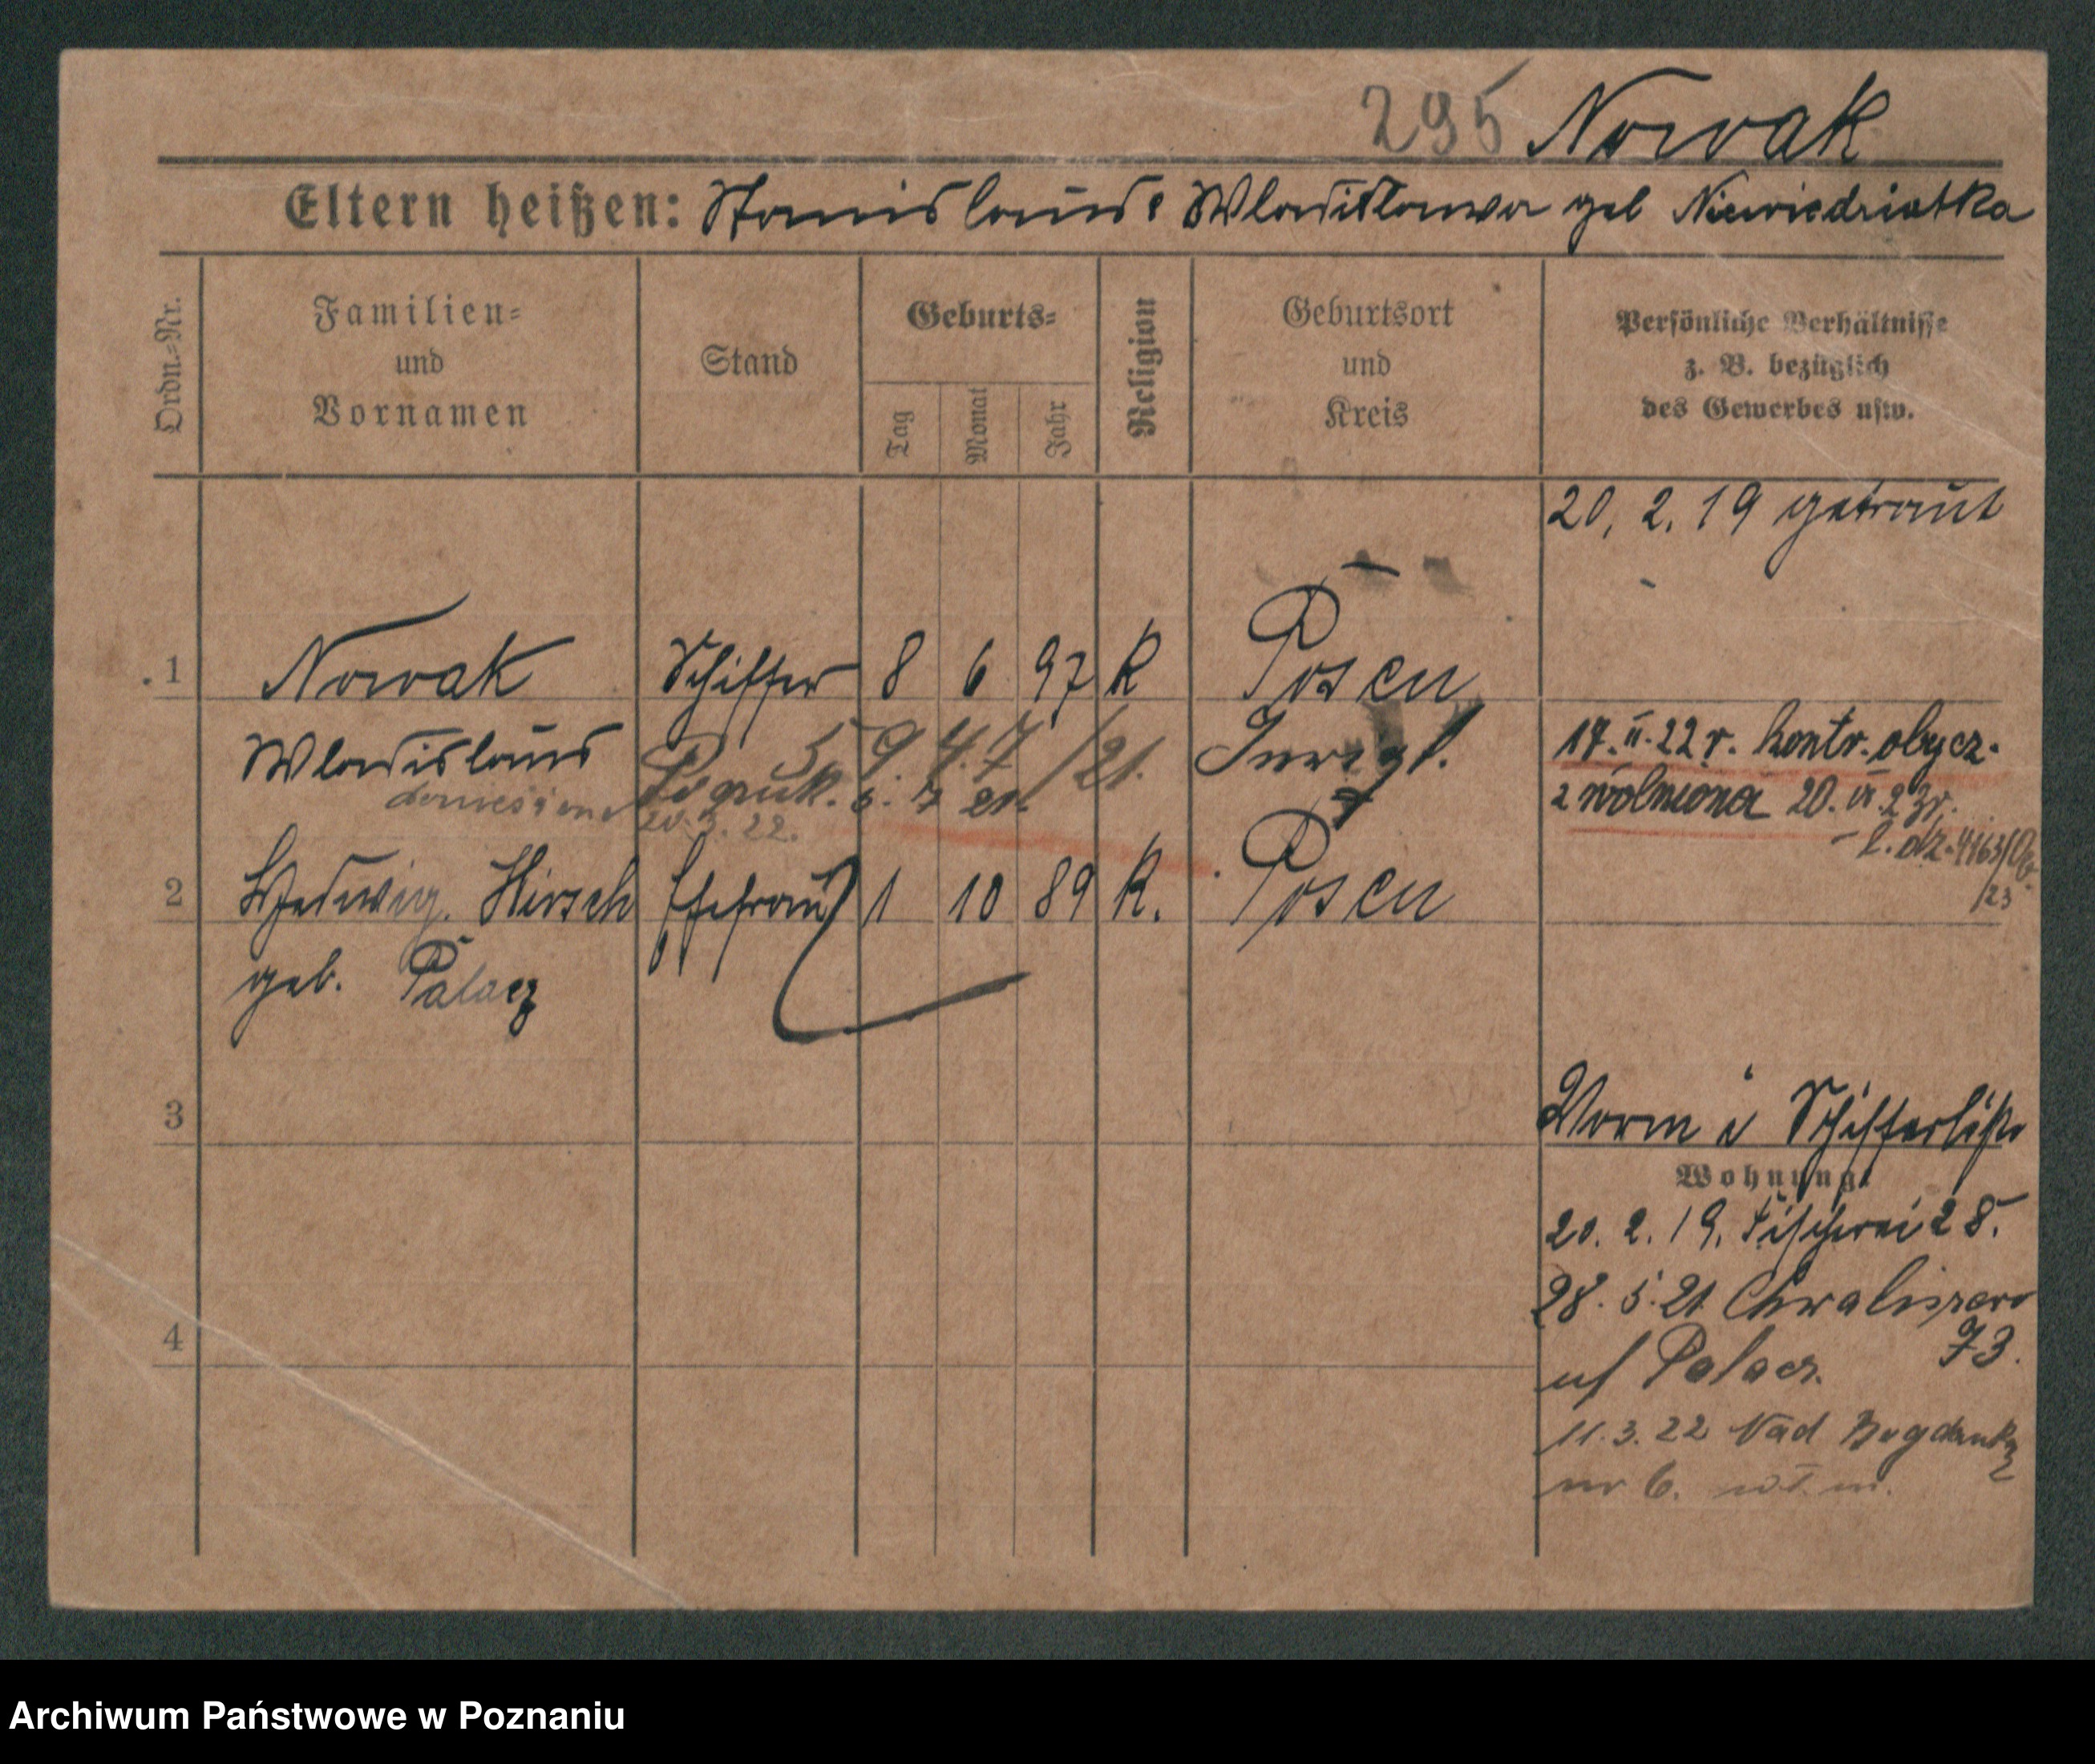 295 Nowak
Eltern heißen: Stanislaus & Wladislawa geb Niewiedziatka
Ordn.=Nr.
Familien=
und
Vornamen
Stand
Geburts=
Tag
Monat
Jahr
Religion
Geburtsort
und
Kreis
Persönliche Verhältnisse
z. B. bezüglich
des Gewerbes usw.
20. 2. 19 getraut
1 Nowak Schiffer 8 6 97 K Posen
Wladislaus
17. II. 22 r. kontr. obycz.
zwolniona 20. 23 r.
l. dz. 4163
/23
20. 3. 22.
2 Hedwig Hirsch Ehefrau 1 10 89 K. Posen
geb. Palacz
3
Schifferliste
Wohnung:
20. 2. 19. Fischerei 28.
28. 5. 21 Chwaliszewo
73.
Palacz.
11. 3. 22 Nad Bogdanką
nr 6.
4
Archiwum Państwowe w Poznaniu